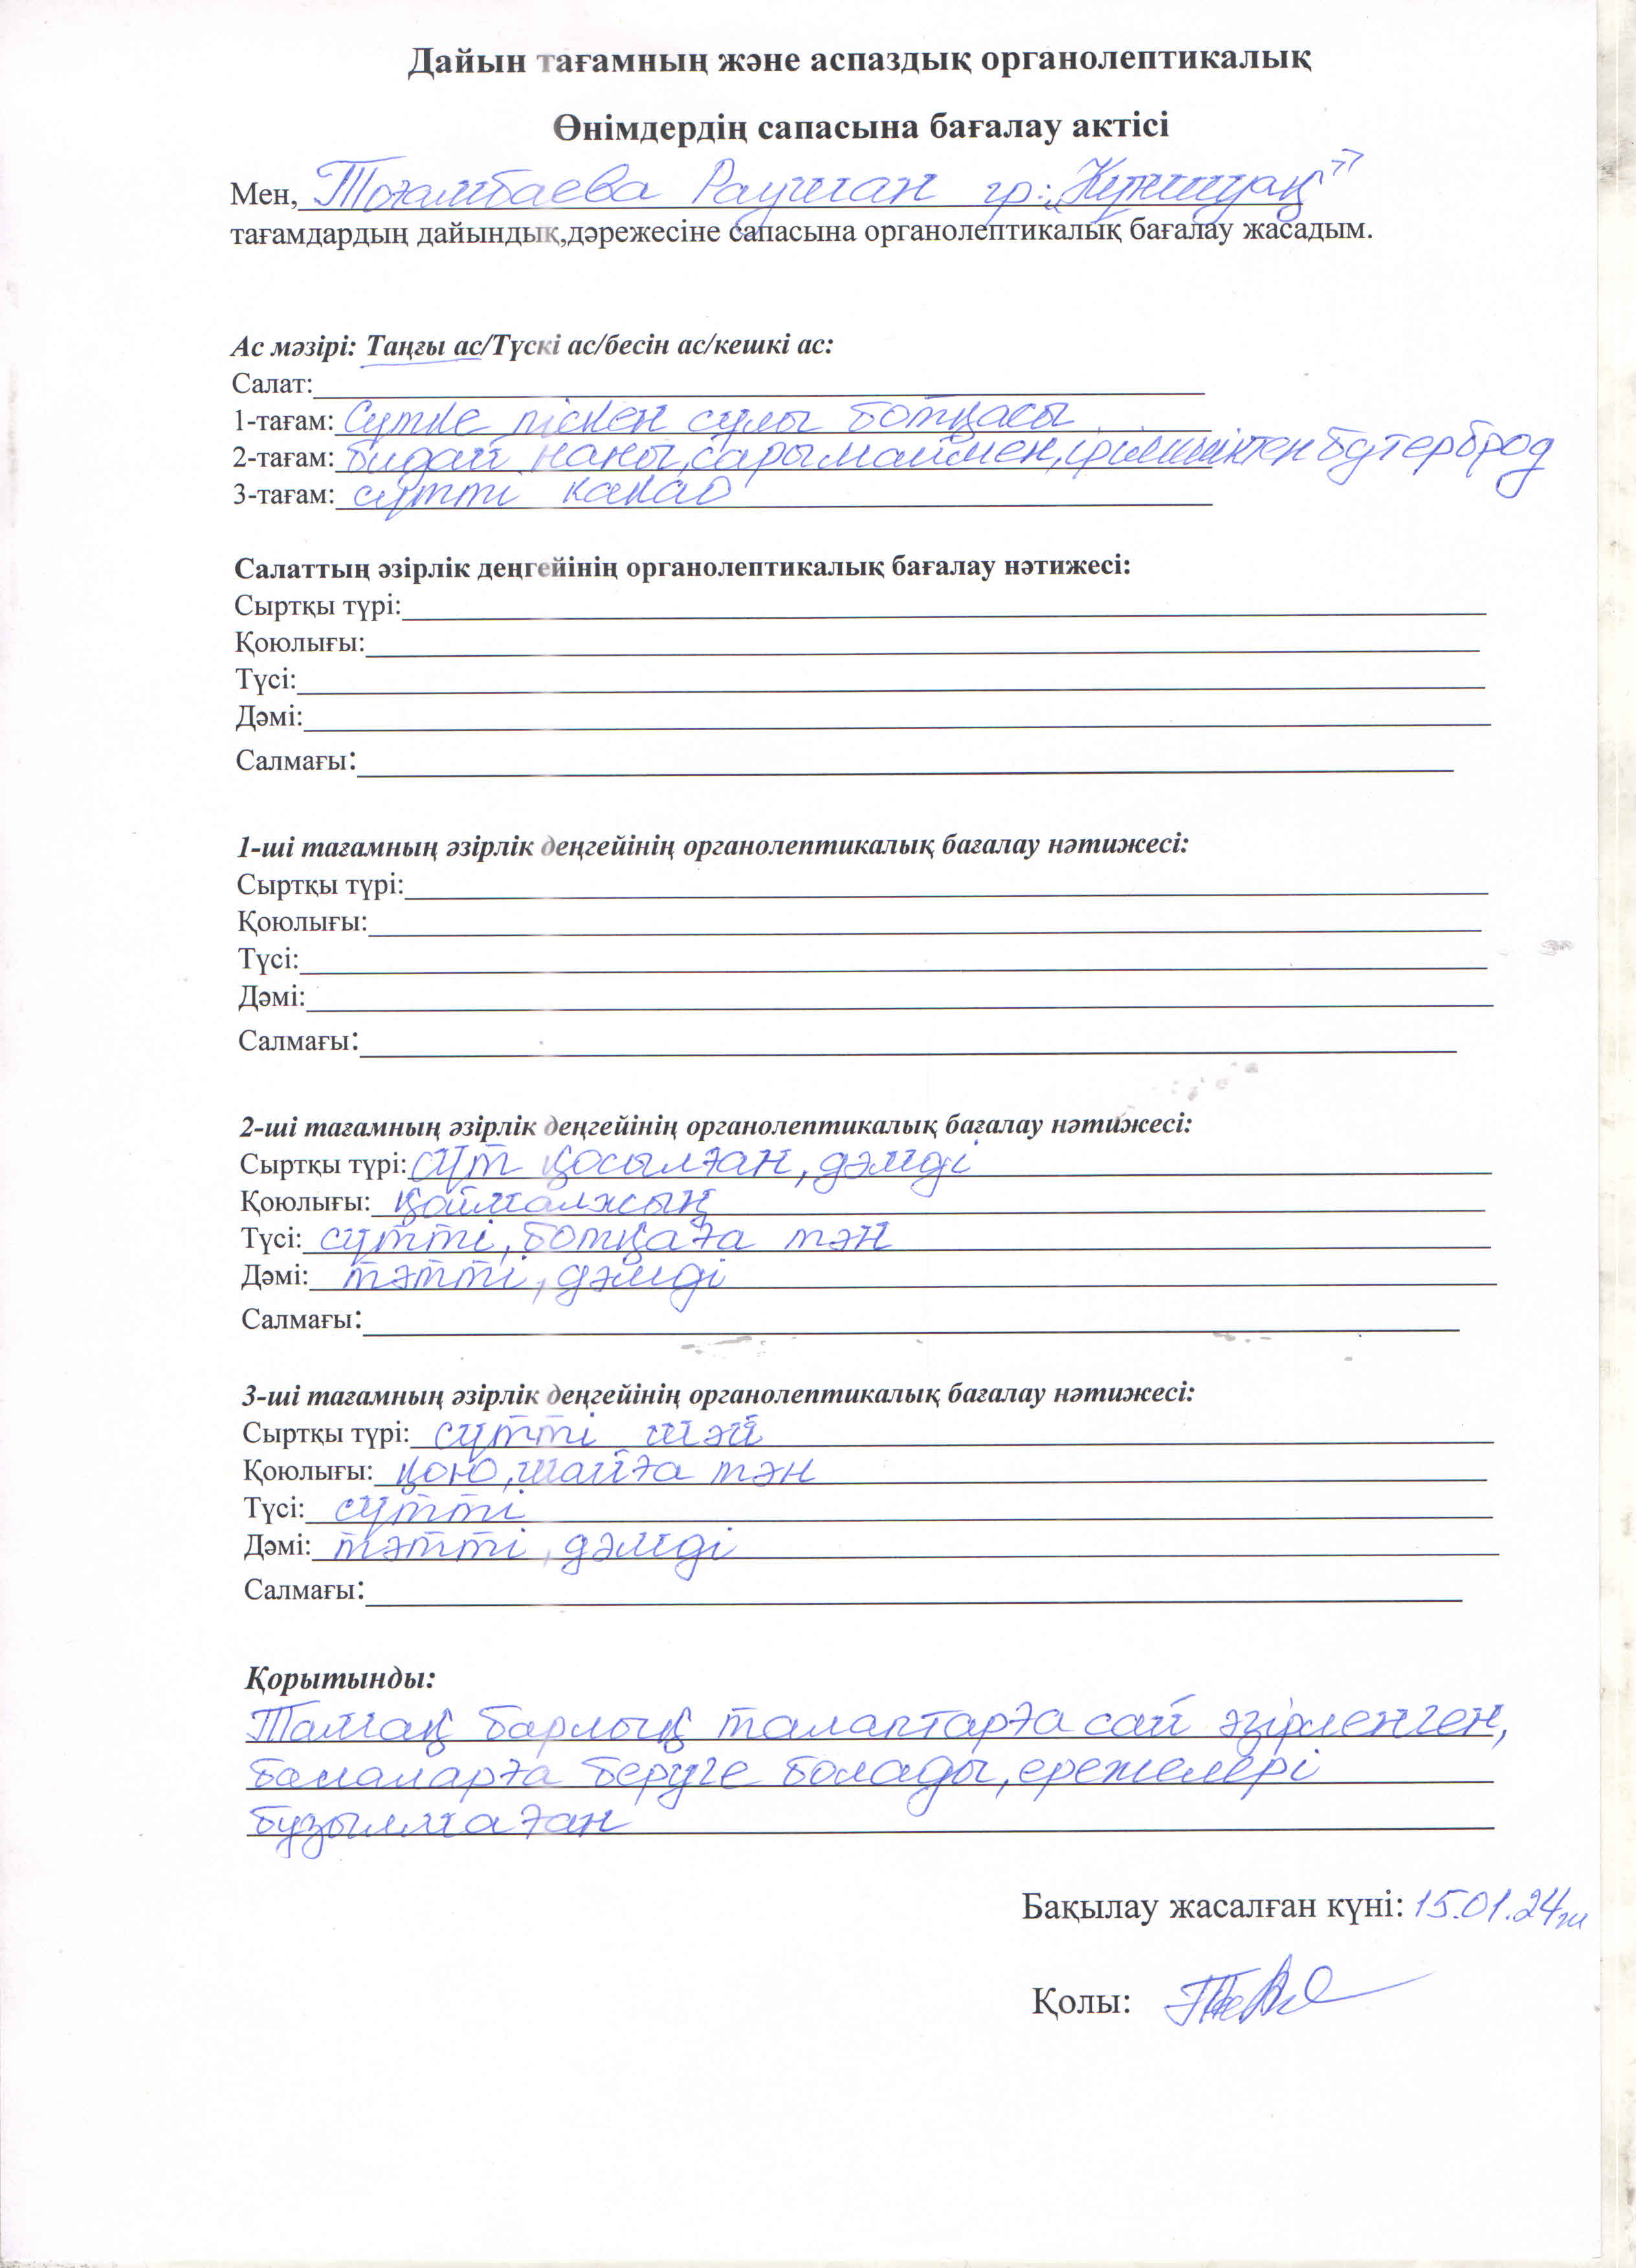 Дайын тағамның және аспаздық органолептикалық
Өнімдердің сапасына бағалау актісі
Мен, Тоғамбаева Раушан гр: „Күншуақ”
тағамдардың дайындық,дәрежесіне сапасына органолептикалық бағалау жасадым.
Ас мәзірі: Таңғы ас/Түскі ас/бесін ас/кешкі ас:
Салат:
1-тағам: Сүтке піскен сұлы ботқасы
2-тағам: бидай наны, сарымаймен, ірімшіктен бутерброд
3-тағам: сүтті какао
Салаттың әзірлік деңгейінің органолептикалық бағалау нәтижесі:
Сыртқы түрі:
Қоюлығы:
Түсі:
Дәмі:
Салмағы:
1-ші тағамның әзірлік деңгейінің органолептикалық бағалау нәтижесі:
Сыртқы түрі:
Қоюлығы:
Түсі:
Дәмі:
Салмағы:
2-ші тағамның әзірлік деңгейінің органолептикалық бағалау нәтижесі:
Сыртқы түрі: сүт қосылған, дәмді
Қоюлығы: қоймалжың
Түсі: сүтті, ботқаға тән
Дәмі: тәтті, дәмді
Салмағы:
3-ші тағамның әзірлік деңгейінің органолептикалық бағалау нәтижесі:
Сыртқы түрі: сүтті шәй
Қоюлығы: қою, шайға тән
Түсі: сүтті
Дәмі: тәтті, дәмді
Салмағы:
Қорытынды:
Тамақ барлық талаптарға сай әзірленген,
балаларға беруге болады, ережелері
бұзылмаған
Бақылау жасалған күні: 15.01.24ж
Қолы: